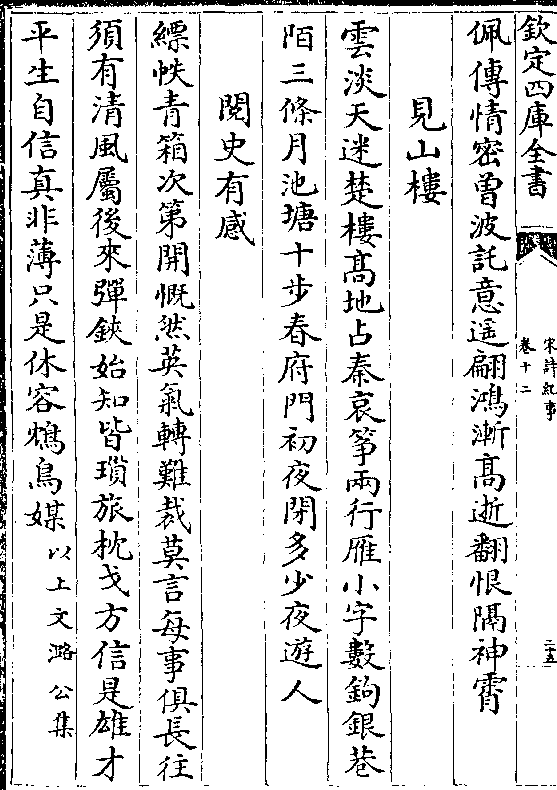 欽定四庫全書
宋詩紀事
卷十二
佩傳情密曽波託意遥翩鴻漸髙逝翻恨隔神霄
見山樓
雲淡天迷楚樓髙地占秦哀筝兩行雁小字數鉤銀巷
陌三條月池塘十步春府門初夜閉多少夜遊人
閱史有感
縹帙青箱次第開慨然英氣轉難裁莫言每事俱長往
須有清風屬後來彈鋏始知皆瑣旅枕戈方信是雄才
平生自信真非薄只是休容鴆鳥媒以上文潞公集